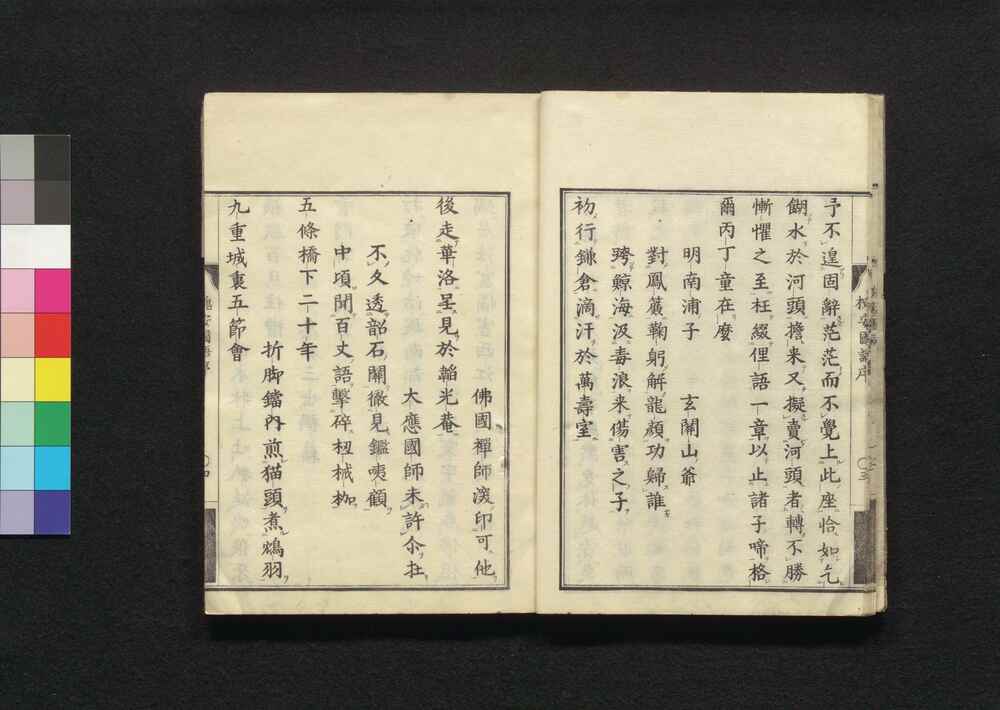 予不遑固辭茫茫而不覺上此座恰如乞
餬水於河頭擔来又擬賣河頭者轉不勝
慚懼之至枉綴俚語一章以止諸子啼格
爾丙丁童在麼
明南浦子　玄關山爺
對鳳蓋鞠躬解龍顔功歸誰
跨鯨海汲毒浪来傷害之子
初行鎌倉滴汗於萬壽室
佛國禪師漫印可他
後走華洛呈見於韜光菴
大應國師未許尒在
不久透韶石關徹見鑑咦顧
中項聞百丈語擊碎杻械枷
五條橋下二十年
折脚鐺内煎猫頭煮鴆羽
九重城裏五節會
槐安國語序